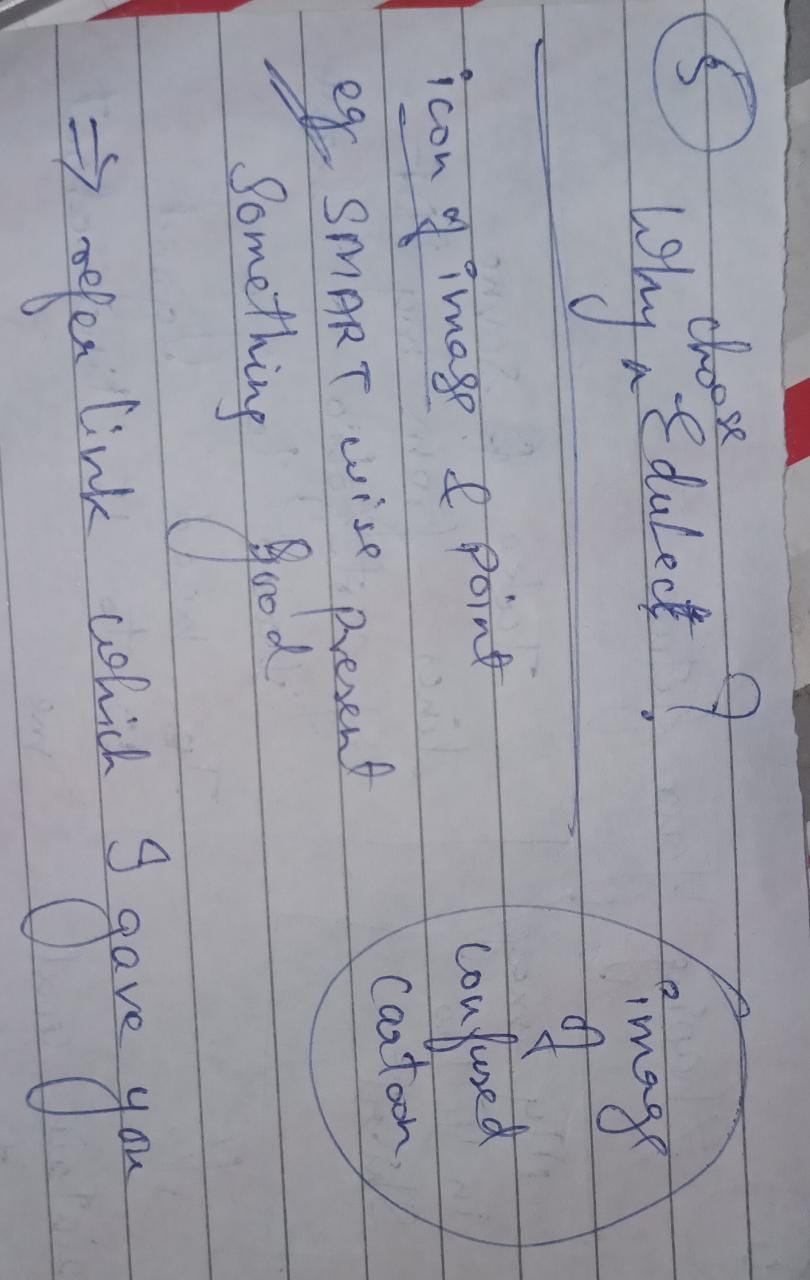 5
Why choose EduLect ?
image
of
confused
cartoon
icon of image & point
eg SMART wise present
Something good
⇒ refer link which I gave you